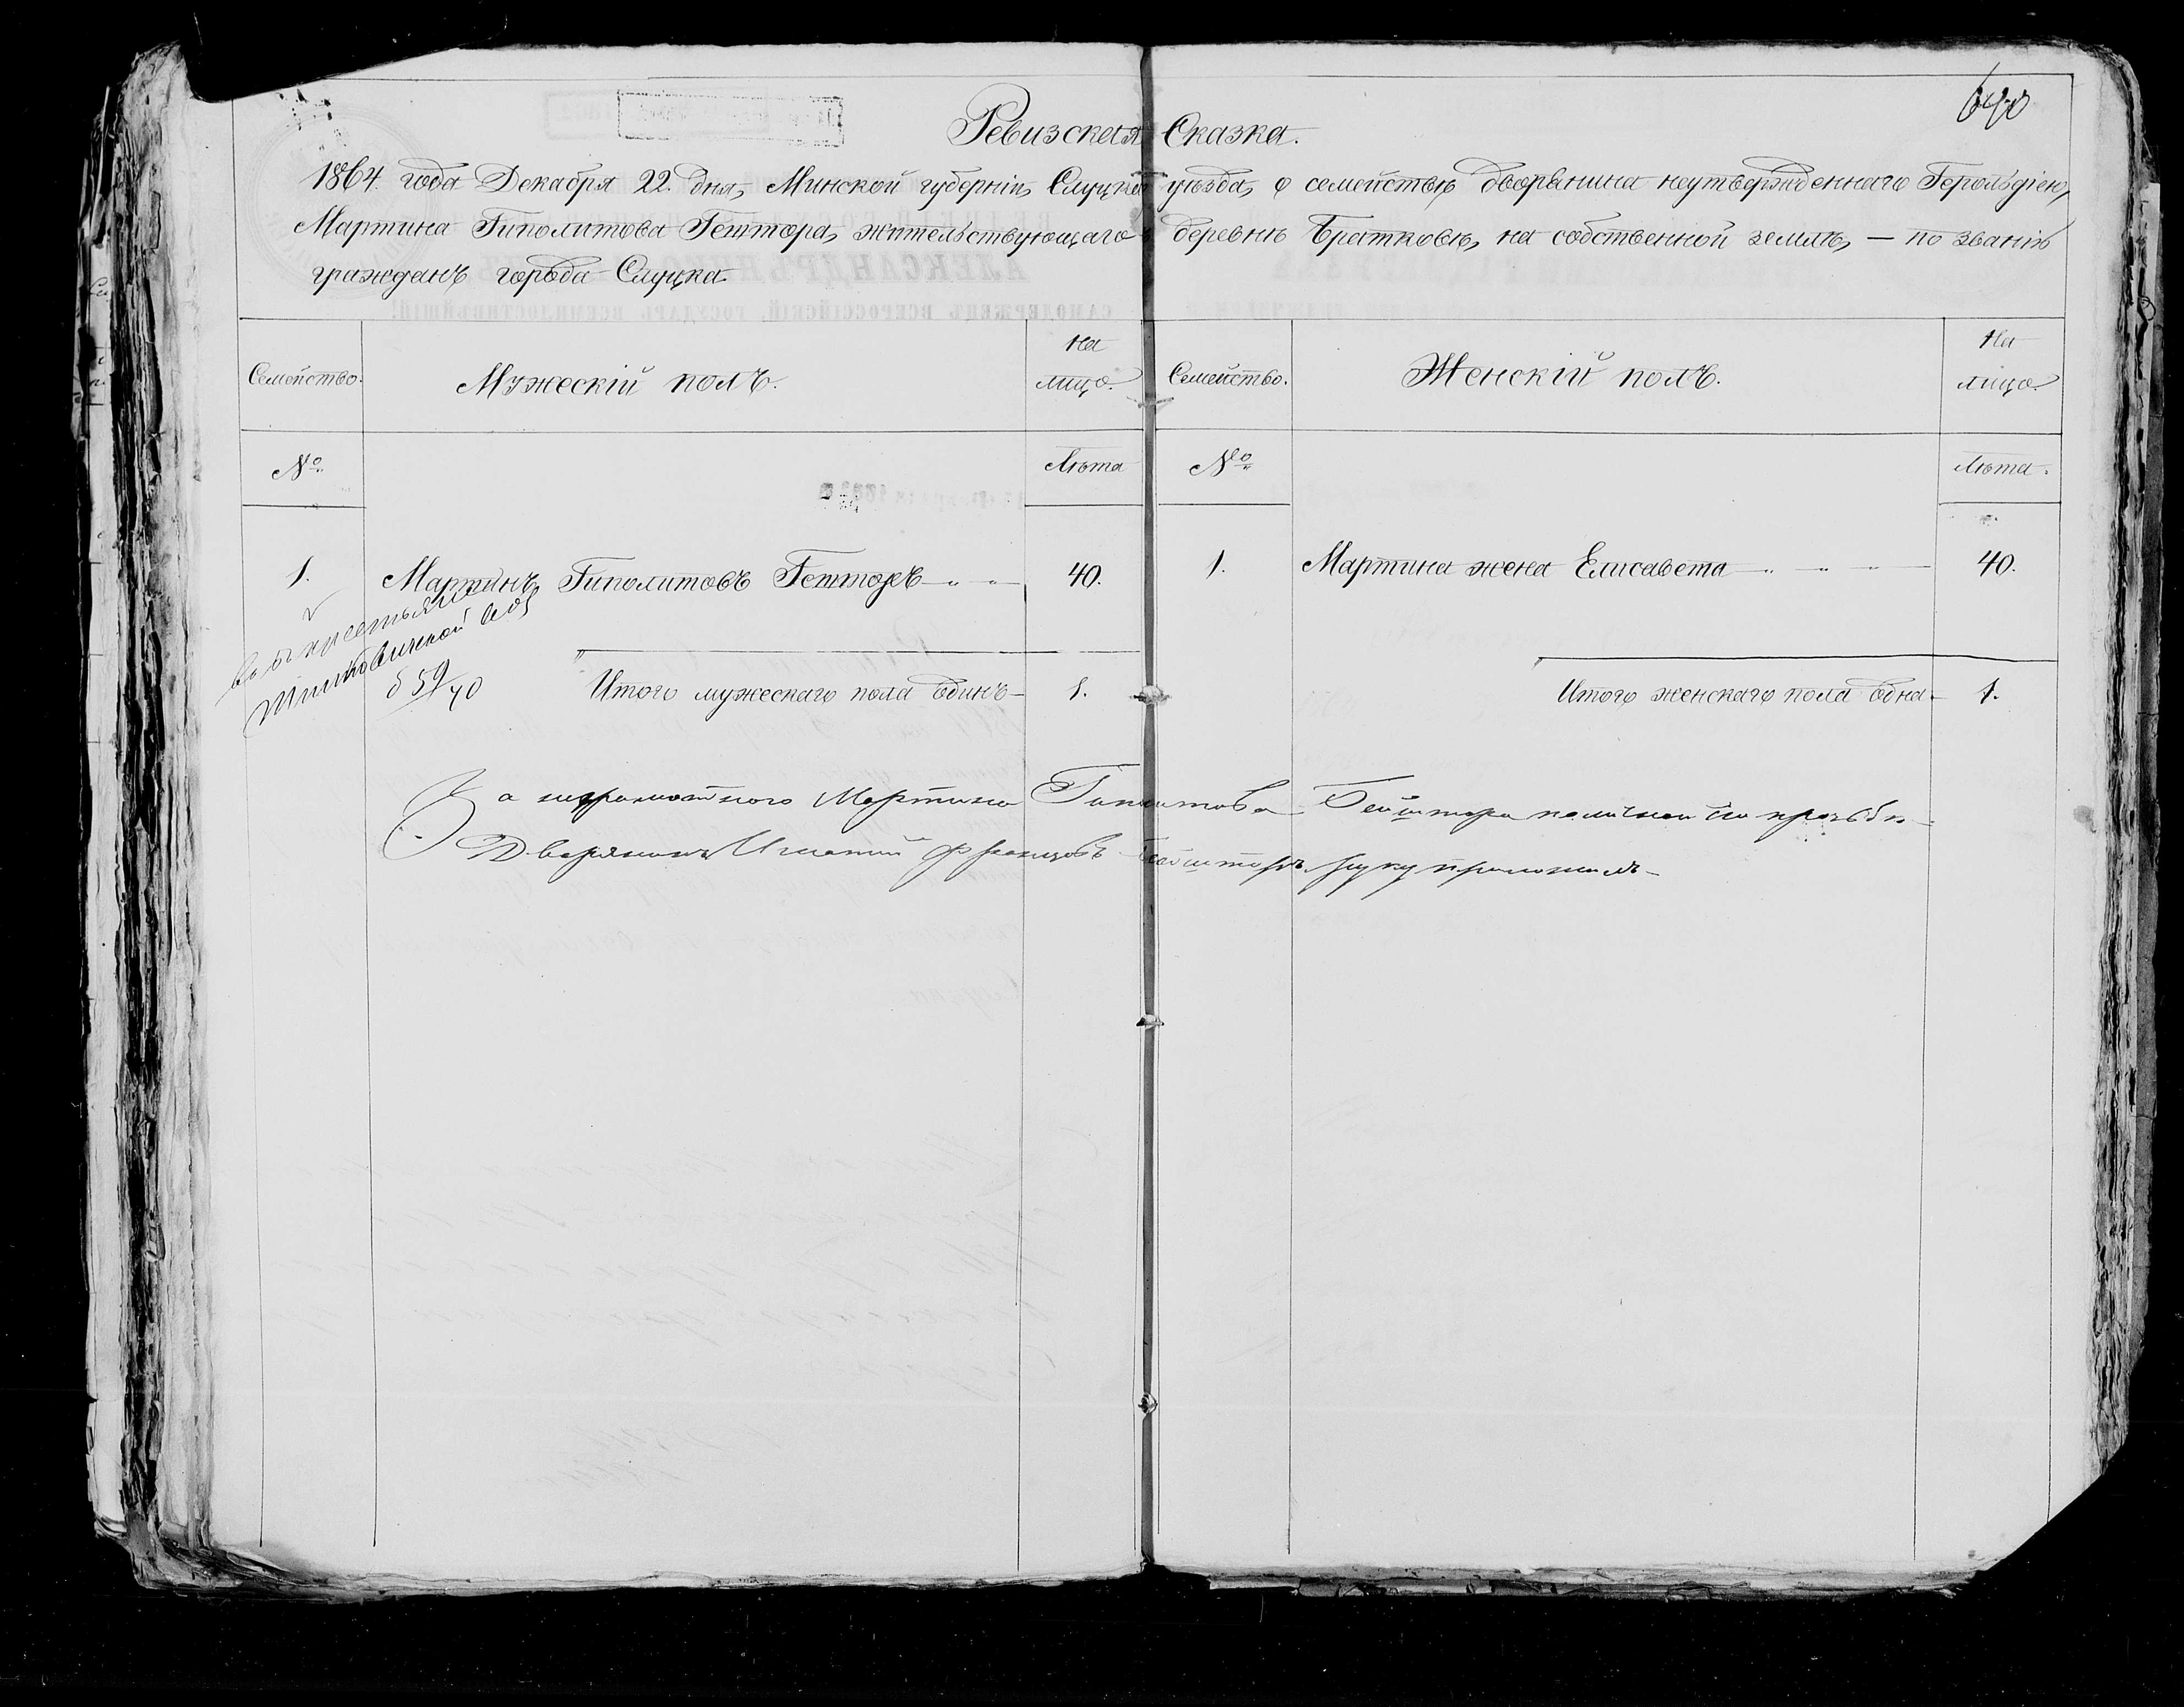 640
Ревизская Сказка.
1864. года Декабря 22. дня, Минской губерніи, Слуцка уѣзда, о семействѣ дворянина неутвержденнаго Герольдіею,
Мартина Гиполитова Гештора, жительствующаго в деревнѣ Братковѣ, на собственной землѣ, — по званію
гражданъ города Слуцка
Семейство. Мужескій полъ. На лицо. Семейство. Женскій полъ. На лицо.
№ Лѣта № Лѣта.
1. Мартинъ Гиполитовъ Гешторъ 40. 1. Мартина жена Елисавета 40.
въ крестьяне
59/40
Итого мужескаго пола одинъ — 1. Итого женскаго пола одна — 1.
За неграмотного Мартина Гиполитова Гейштора по личной его прозьбѣ
Дворянинъ Игнатий Францовъ Гейшторъ руку приложилъ